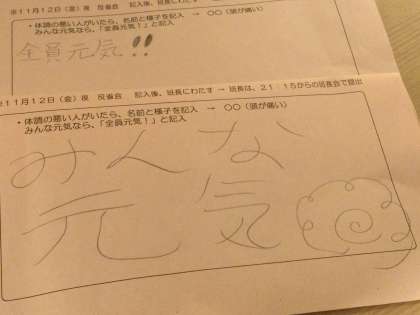 ※11月12日（金）夜　反省会　　記入後、班長にわたす
・体調の悪い人がいたら、名前と様子を記入　→　○○（頭が痛い）
みんな元気なら、「全員元気！」と記入
全員元気!!
※11月12日（金）夜　反省会　　記入後、班長にわたす　→　班長は、21：15からの班長会で提出
・体調の悪い人がいたら、名前と様子を記入　→　○○（頭が痛い）
みんな元気なら、「全員元気！」と記入
みんな
元気